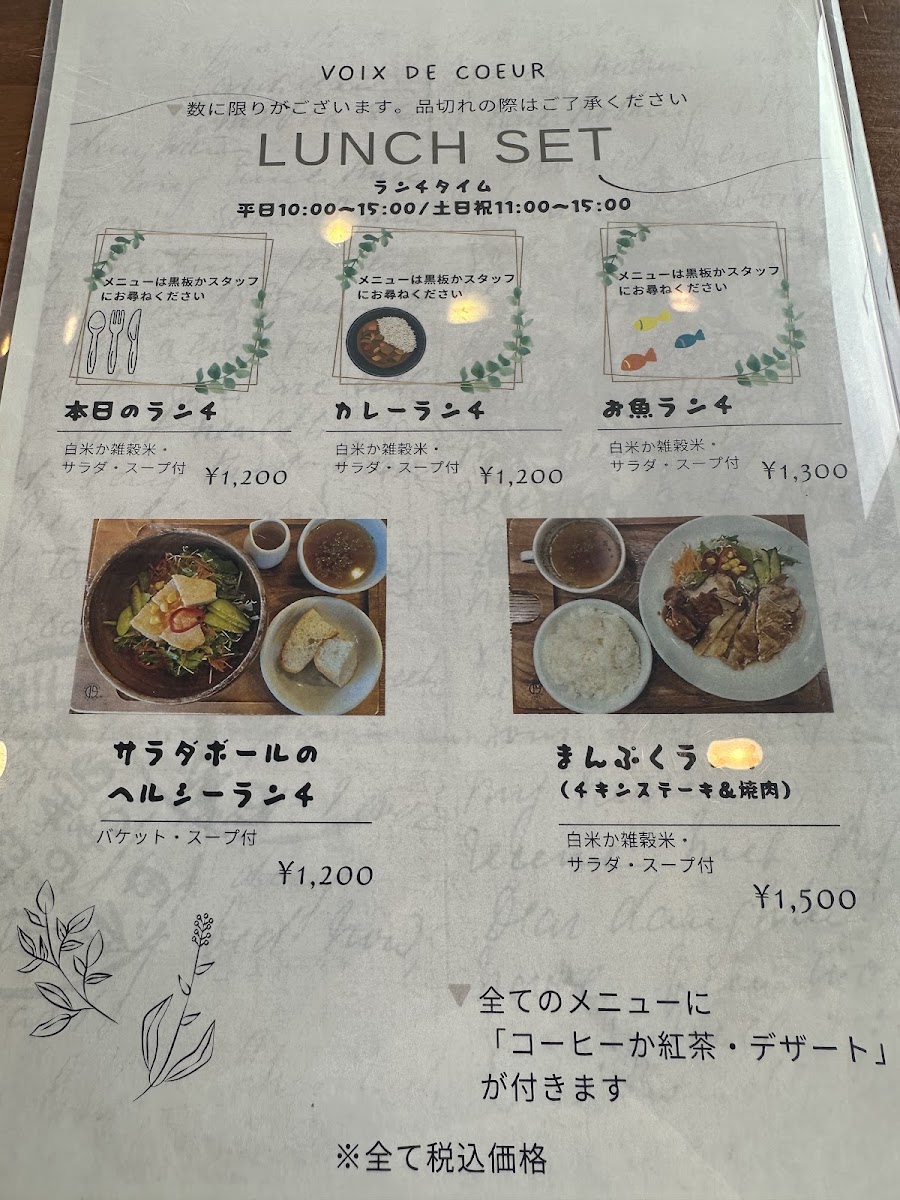 VOIX DE COEUR
▼数に限りがございます。品切れの際はご了承ください
LUNCH SET
ランチタイム
平日10:00〜15:00/土日祝11:00〜15:00
メニューは黒板かスタッフ
にお尋ねください
本日のランチ
白米か雑穀米・
サラダ・スープ付
¥1,200
メニューは黒板かスタッフ
にお尋ねください
カレーランチ
白米か雑穀米・
サラダ・スープ付
¥1,200
メニューは黒板かスタッフ
にお尋ねください
お魚ランチ
白米か雑穀米・
サラダ・スープ付
¥1,300
サラダボールの
ヘルシーランチ
バケット・スープ付
¥1,200
まんぷくラ
(チキンステーキ&焼肉)
白米か雑穀米・
サラダ・スープ付
¥1,500
▼全てのメニューに
「コーヒーか紅茶・デザート」
が付きます
※全て税込価格